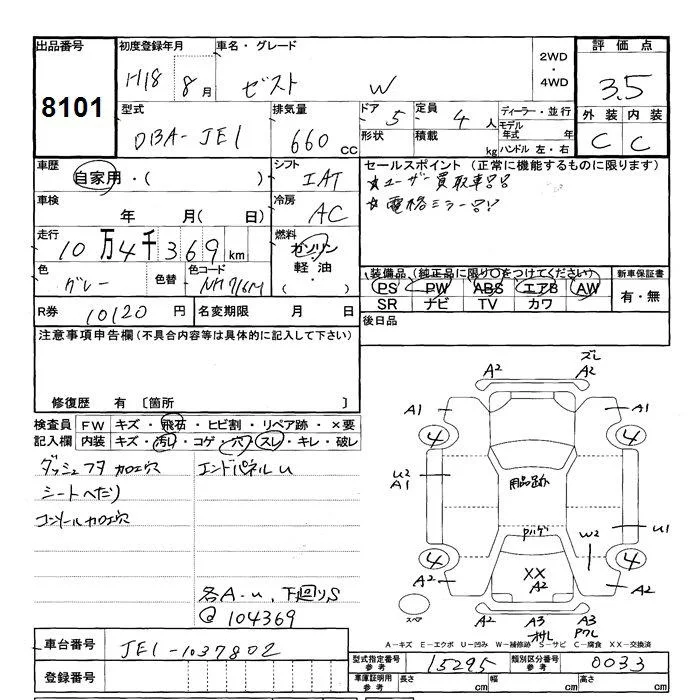 出品番号 初度登録年月 車名・グレード 2WD・4WD 評価点
8101 H18 8月 ゼスト W 3.5
型式 排気量 ドア 定員 ディーラー・並行 外装 内装
DBA-JE1 660cc 5 4人 モデル年式 年 C C
形状 積載 kg ハンドル 左・右
車歴 シフト セールスポイント(正常に機能するものに限ります)
自家用・( ) IAT ☆ユーザー買取車!!
車検 冷房 ☆電格ミラー!!
年 月( 日) AC
走行 燃料
10万4千369km ガソリン・軽油・( )
色 色替 色コード 装備品(純正品に限り○をつけてください) 新車保証書
グレー NH716M PS PW ABS エアB AW 有・無
SR ナビ TV カワ
R券 10120円 名変期限 月 日 後日品
注意事項申告欄(不具合内容等は具体的に記入して下さい)
修復歴 有 〔箇所
検査員 FW キズ・飛石・ヒビ割・リペア跡・×要
記入欄 内装 キズ・汚レ・コゲ・穴・スレ・キレ・破レ
ダッシュフタ加工穴 エンドパネルU
シートへたり
コンソール加工穴
各A-U、下廻りS
@104369
ズレ
A2 A2
A1 A1
4 4
U2 A1 用品跡
U1
Pハゲ W2
4 4
A2 XX A2 A2
スペア A2 A3 A3
A-キズ E-エクボ U-凹み W-補修跡 S-サビ C-腐食 XX-交換済
車台番号 JE1-1037802
型式指定番号 参考 15295 類別区分番号 参考 0033
登録番号 車庫証明用 参考 長さ cm 幅 cm 高さ cm